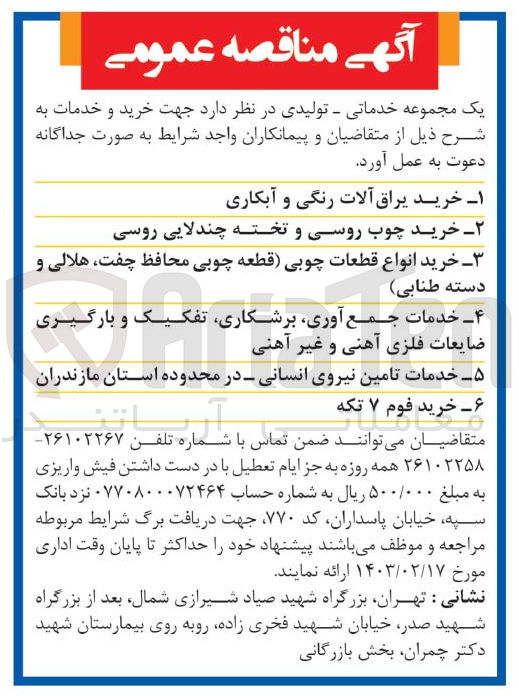 آگهی مناقصه عمومی
یک مجموعه خدماتی ـ تولیدی در نظر دارد جهت خرید و خدمات به
شرح ذیل از متقاضیان و پیمانکاران واجد شرایط به صورت جداگانه
دعوت به عمل آورد.
۱ـ خرید یراق‌آلات رنگی و آبکاری
۲ـ خرید چوب روسی و تخته چندلایی روسی
۳ـ خرید انواع قطعات چوبی (قطعه چوبی محافظ چفت، هلالی و
دسته طنابی)
۴ـ خدمات جمع‌آوری، برشکاری، تفکیک و بارگیری
ضایعات فلزی آهنی و غیر آهنی
۵ـ خدمات تامین نیروی انسانی ـ در محدوده استان مازندران
۶ـ خرید فوم ۷ تکه
متقاضیان می‌توانند ضمن تماس با شماره تلفن ۲۶۱۰۲۲۶۷-
۲۶۱۰۲۲۵۸ همه روزه به جز ایام تعطیل با در دست داشتن فیش واریزی
به مبلغ ۵۰۰/۰۰۰ ریال به شماره حساب ۰۷۷۰۸۰۰۰۷۲۴۶۴ نزد بانک
سپه، خیابان پاسداران، کد ۷۷۰، جهت دریافت برگ شرایط مربوطه
مراجعه و موظف می‌باشند پیشنهاد خود را حداکثر تا پایان وقت اداری
مورخ ۱۴۰۳/۰۲/۱۷ ارائه نمایند.
نشانی : تهران، بزرگراه شهید صیاد شیرازی شمال، بعد از بزرگراه
شهید صدر، خیابان شهید فخری زاده، روبه روی بیمارستان شهید
دکتر چمران، بخش بازرگانی
AriaTen
معاملاتی آریاتندر